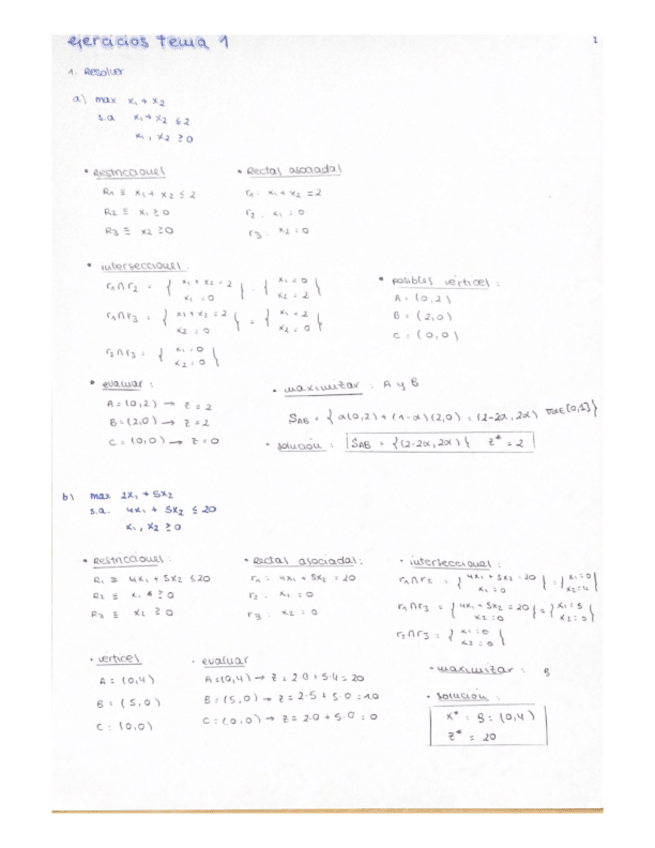 ejercicios tema 1
1
1. Resolver
a) max x₁ + x₂
s.a x₁ + x₂ ≤ 2
x₁, x₂ ≥ 0
• Restricciones
R1 ≡ x₁ + x₂ ≤ 2
R2 ≡ x₁ ≥ 0
R3 ≡ x₂ ≥ 0
• Rectas asociadas
r₁: x₁ + x₂ = 2
r₂: x₁ = 0
r₃: x₂ = 0
• intersecciones:
r₁∩r₂ = { x₁ + x₂ = 2 x₁ = 0 } = { x₁ = 0 x₂ = 2 }
r₁∩r₃ = { x₁ + x₂ = 2 x₂ = 0 } = { x₁ = 2 x₂ = 0 }
r₂∩r₃ = { x₁ = 0 x₂ = 0 }
• posibles vértices:
A = (0,2)
B = (2,0)
C = (0,0)
• evaluar:
A = (0,2) → z = 2
B = (2,0) → z = 2
C = (0,0) → z = 0
• maximizar: A y B
S_AB = { α(0,2) + (1-α)(2,0) = (2-2α, 2α) ∀α∈[0,1] }
• solución: S_AB = {(2-2α, 2α)} z* = 2
b) max 2x₁ + 5x₂
s.a. 4x₁ + 5x₂ ≤ 20
x₁, x₂ ≥ 0
• Restricciones:
R₁ ≡ 4x₁ + 5x₂ ≤ 20
R2 ≡ x₁ ≥ 0
R3 ≡ x₂ ≥ 0
• Rectas asociadas:
r₁: 4x₁ + 5x₂ = 20
r₂: x₁ = 0
r₃: x₂ = 0
• intersecciones:
r₁∩r₂ = { 4x₁ + 5x₂ = 20 x₁ = 0 } = { x₁ = 0 x₂ = 4 }
r₁∩r₃ = { 4x₁ + 5x₂ = 20 x₂ = 0 } = { x₁ = 5 x₂ = 0 }
r₂∩r₃ = { x₁ = 0 x₂ = 0 }
• vértices
A = (0,4)
B = (5,0)
C = (0,0)
• evaluar
A = (0,4) → z = 2·0 + 5·4 = 20
B = (5,0) → z = 2·5 + 5·0 = 10
C = (0,0) → z = 2·0 + 5·0 = 0
• maximizar: B
• solución:
x* = B = (0,4)
z* = 20